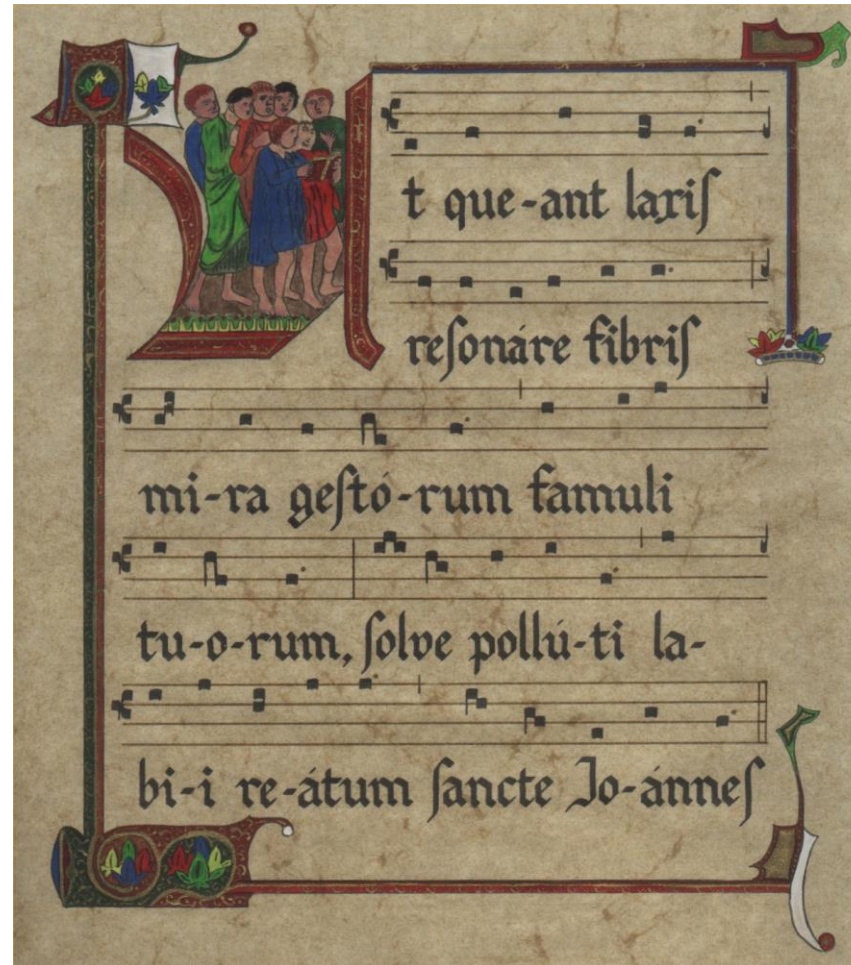 Ut que-ant laxiſ
reſonáre fibriſ
mi-ra geſtó-rum famuli
tu-o-rum, ſolve pollú-ti la-
bi-i re-átum ſancte Jo-ánneſ